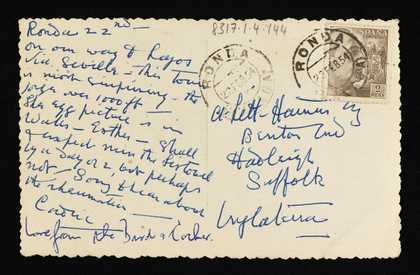 Ronda 22nd
on our way to Lagos
via Seville - This town
is most surprising - the
gorge was 1000 ft -
The egg picture is in
Wales - Esther - Shall
miss the Festival
by a day or 2, but perhaps
not - Sorry to hear about
the rheumatism -
Cedric
Love from
8317.1.4.144
RONDA
RONDA
ESPAÑA
A Lett-Haines Esq
Benton End
Hadleigh
Suffolk
Inglaterra